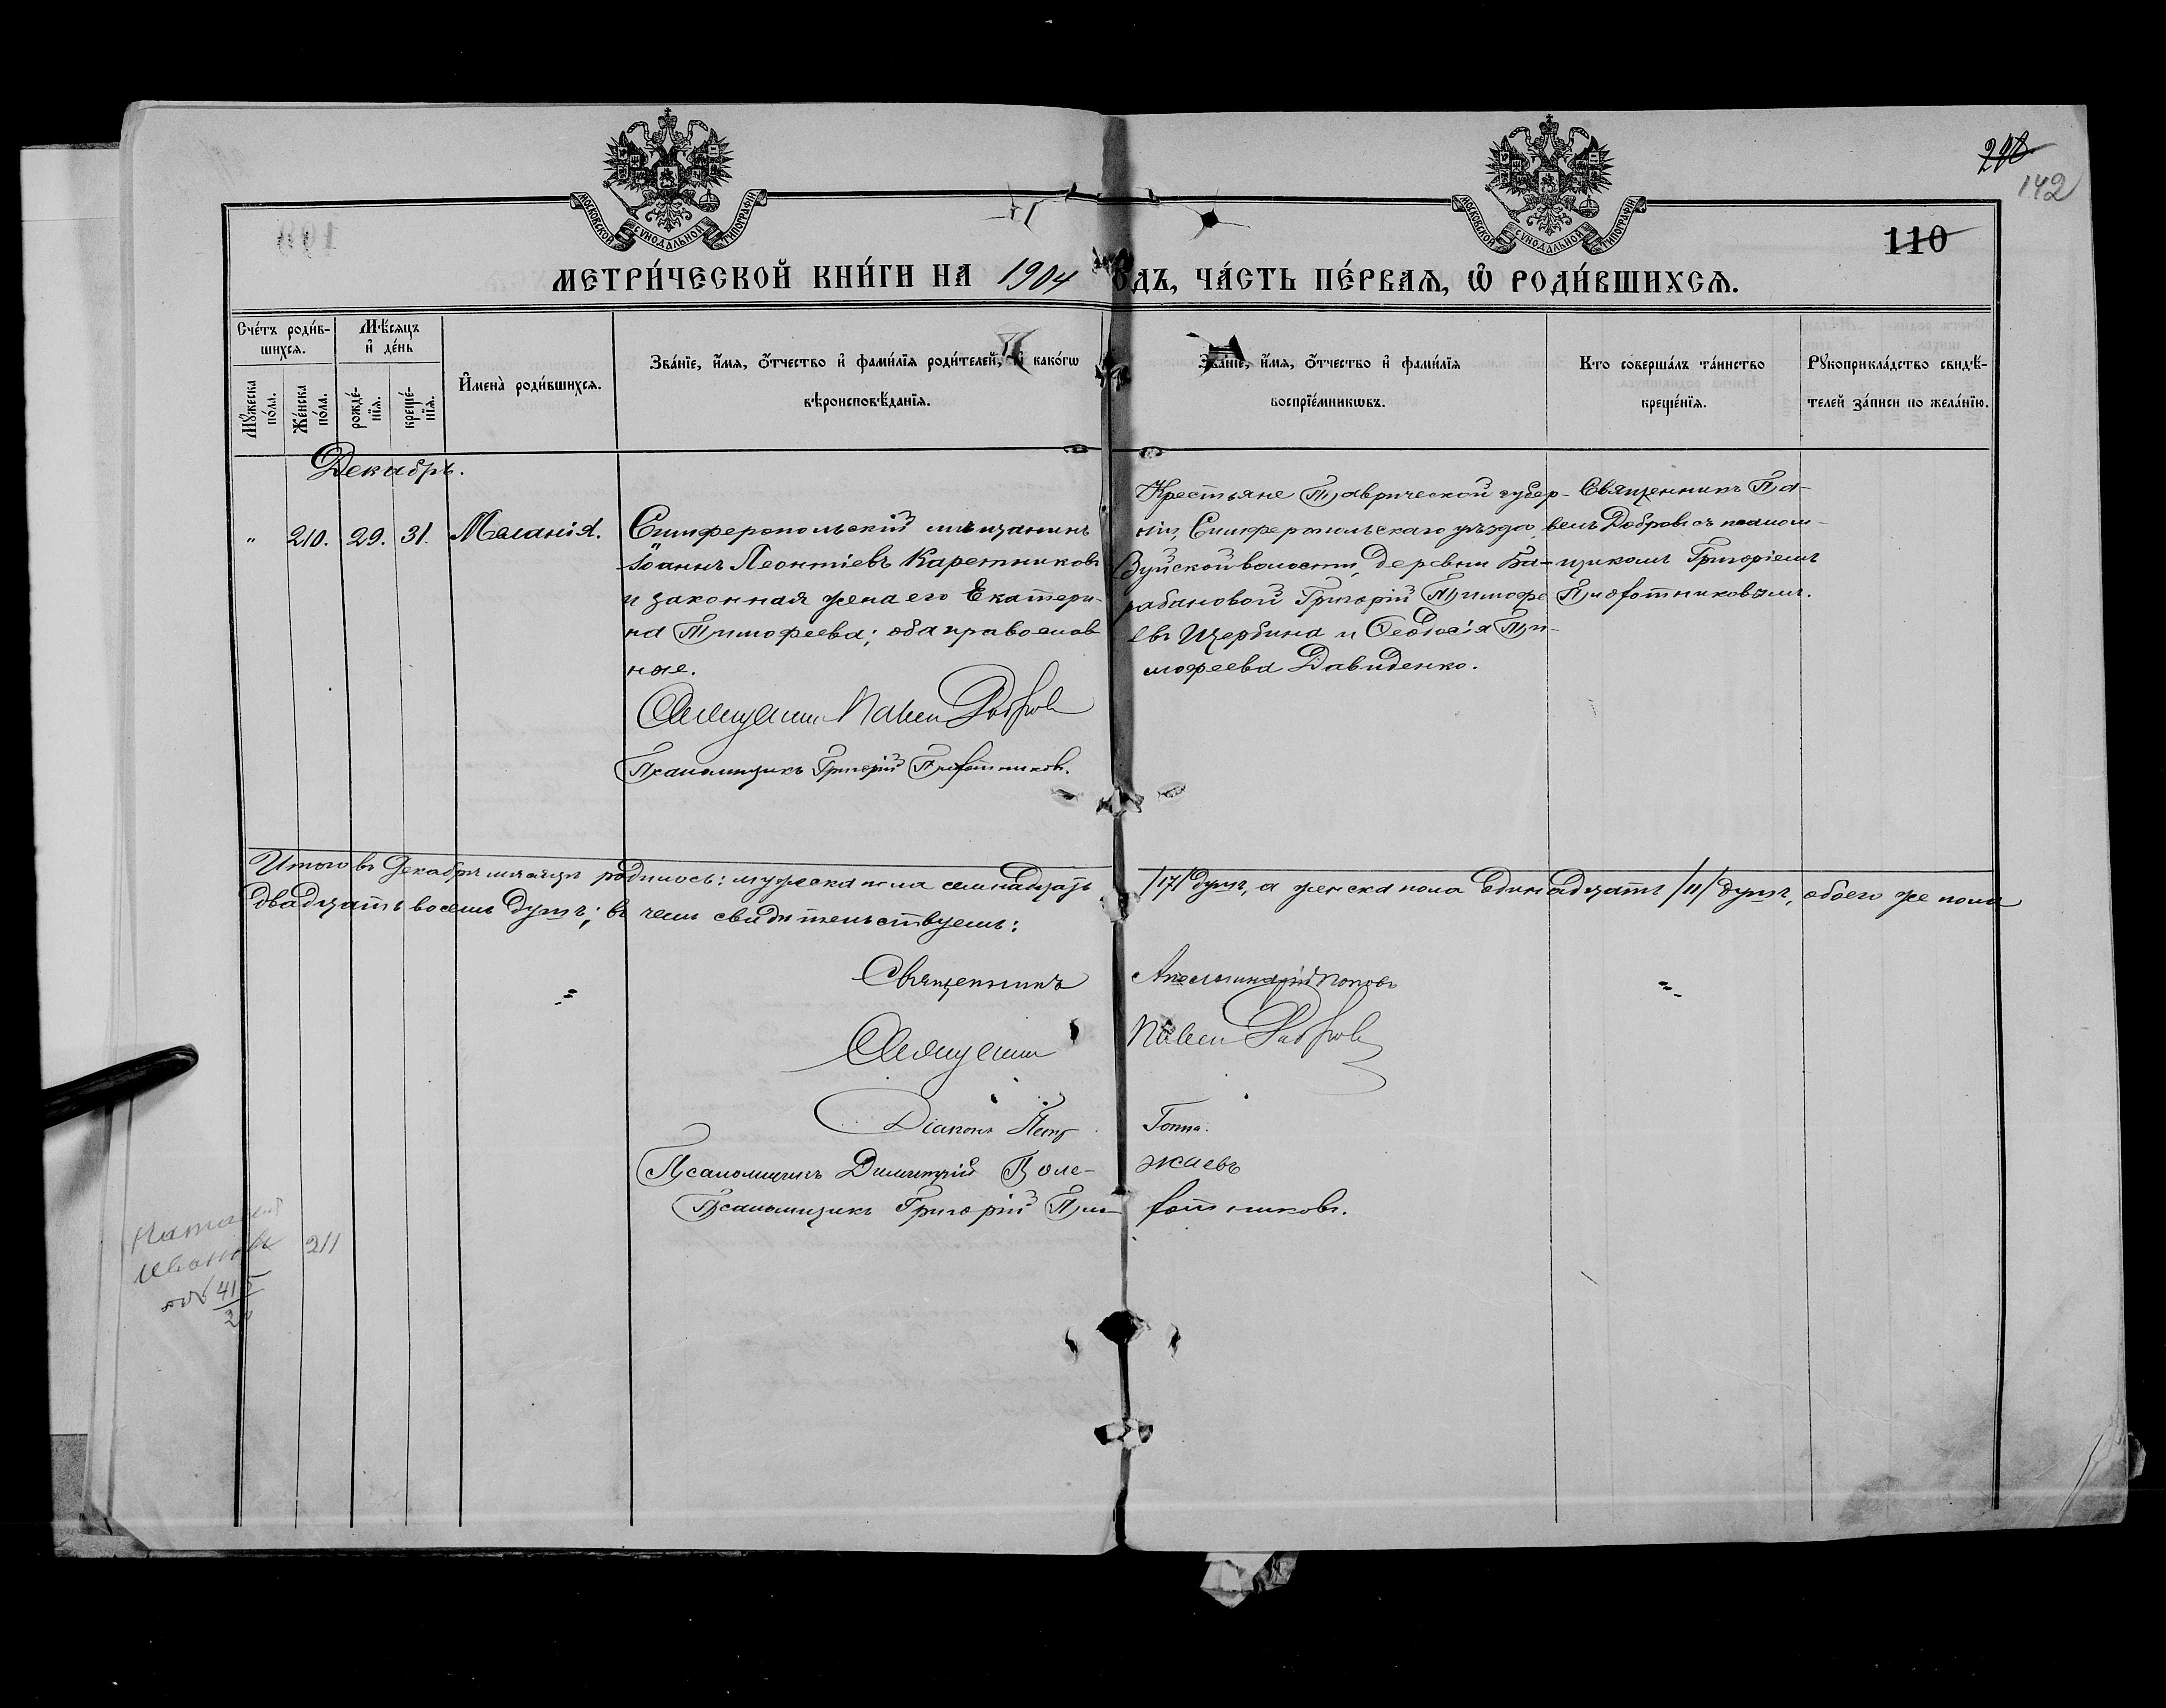 МОСКОВСКОЙ СѴНОДАЛЬНОЙ ТИПОГРАФІИ
МОСКОВСКОЙ СѴНОДАЛЬНОЙ ТИПОГРАФІИ
142
110
МЕТРИ́ЧЕСКОЙ КНИ́ГИ НА 1904 ОДЪ, ЧА́СТЬ ПЕ́РВАѦ, Ѡ҆ РОДИ́ВШИХСѦ.
Счéтъ роди́в-
шихсѧ.
Мѣ́сѧцъ
и҆ дéнь
Мꙋ́жеска
пóла.
Жéнска
пóла.
рождé-
нїѧ.
крещé-
нїѧ.
И҆менà роди́вшихсѧ.
Звáнїе, и҆́мѧ, ѻ҆́тчество и҆ фами́лїѧ роди́телей, и҆ какóгѡ
вѣроисповѣ́данїѧ.
Звáнїе, и҆́мѧ, ѻ҆́тчество и҆ фами́лїѧ
воспрїéмникѡвъ.
Кто совершáлъ тáинство
крещéнїѧ.
Рꙋкоприклáдство свидѣ́-
телей зáписи по желáнїю.
Декабрь.
" 210. 29. 31. Меланія.
Симферопольскій мѣщанинъ
Іоаннъ Леонтіевъ Каретниковъ
и законная жена его Екатери-
на Тимофеева; оба православ
ные.
Священникъ Павелъ Добровъ
Псаломщикъ Григорій
Крестьяне Таврической губер-
ніи, Симферопольскаго уѣзда,
Зуйской волости, деревни Ба-
рабановой Григорій Тимофе
евъ Щербина и Ѳеодосія Ти-
мофеева Давиденко.
Священникъ Па-
велъ Добровъ съ псалом-
щикомъ Григоріемъ
Итого въ Декабрѣ мѣсяцѣ родилось: мужеска пола семнадцать /17/ душъ, а женска пола одинадцать /11/ душъ, обоего же пола
двадцать восемь душъ; въ чемъ свидѣтельствуемъ:
Священникъ Аполлинарій Поповъ
Священникъ Павелъ Добровъ
Діаконъ Петръ Гопна.
Псаломщикъ Димитрій Воле-жаевъ
Псаломщикъ Григорій
211
415